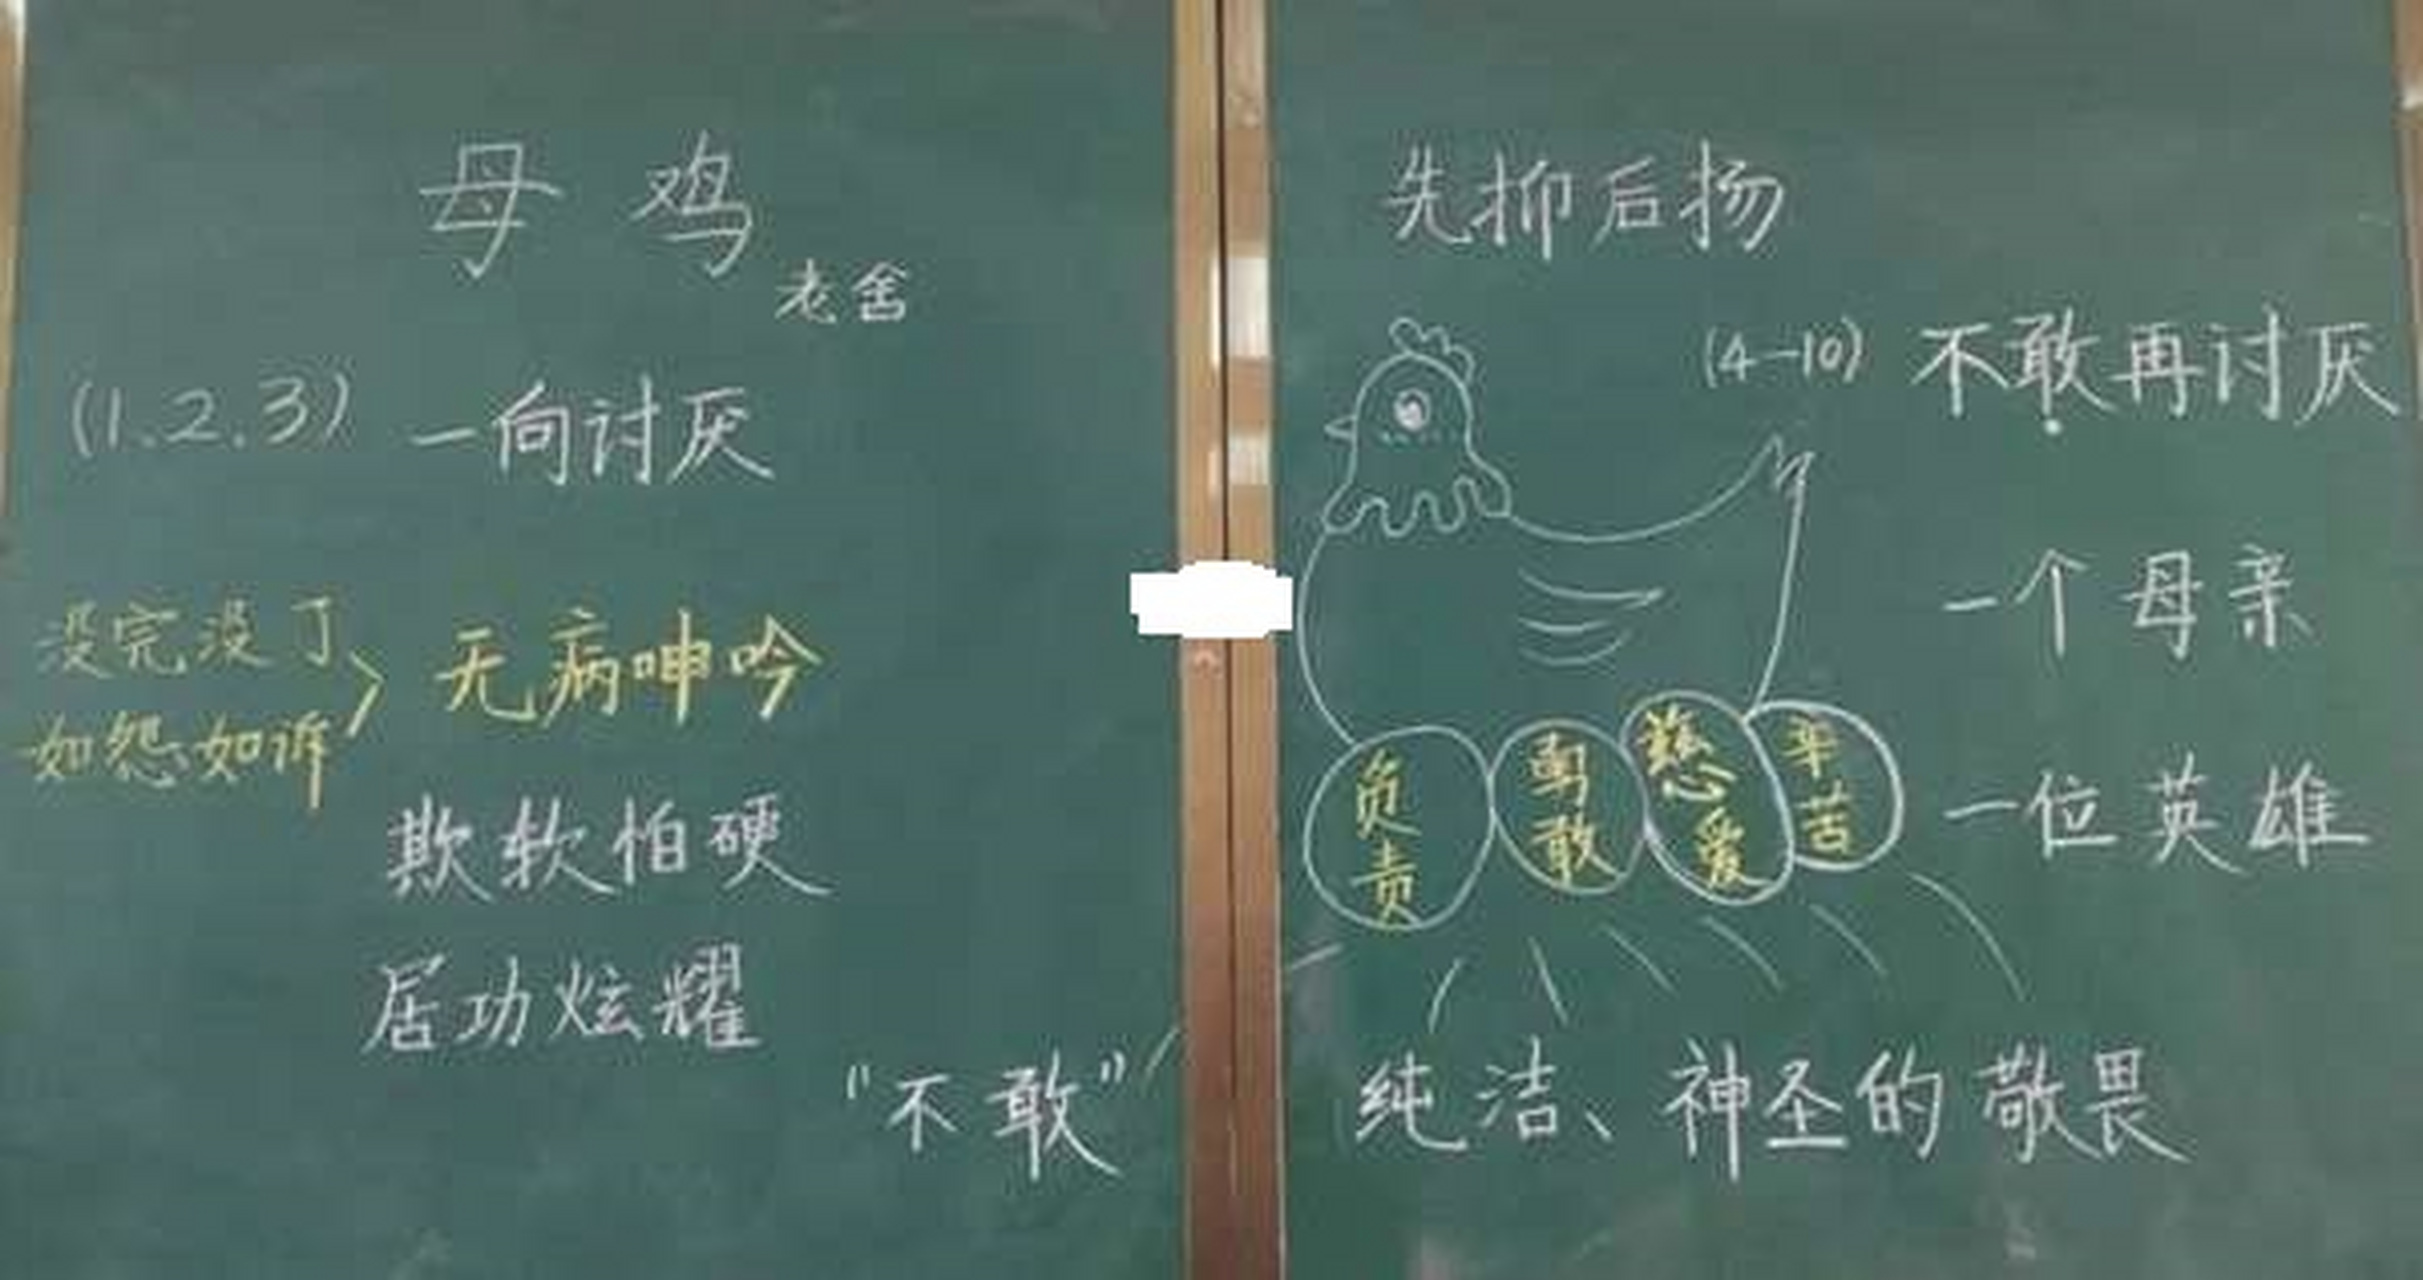 母鸡
老舍
(1.2.3) 一向讨厌
没完没了
如怨如诉
无病呻吟
欺软怕硬
居功炫耀
"不敢"
先抑后扬
(4—10) 不敢再讨厌
一个母亲
负责
勇敢
慈爱
辛苦
一位英雄
纯洁、神圣的敬畏